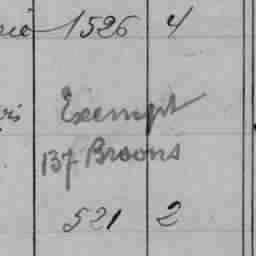 1526 4
Exempt
137 Broons
521 2